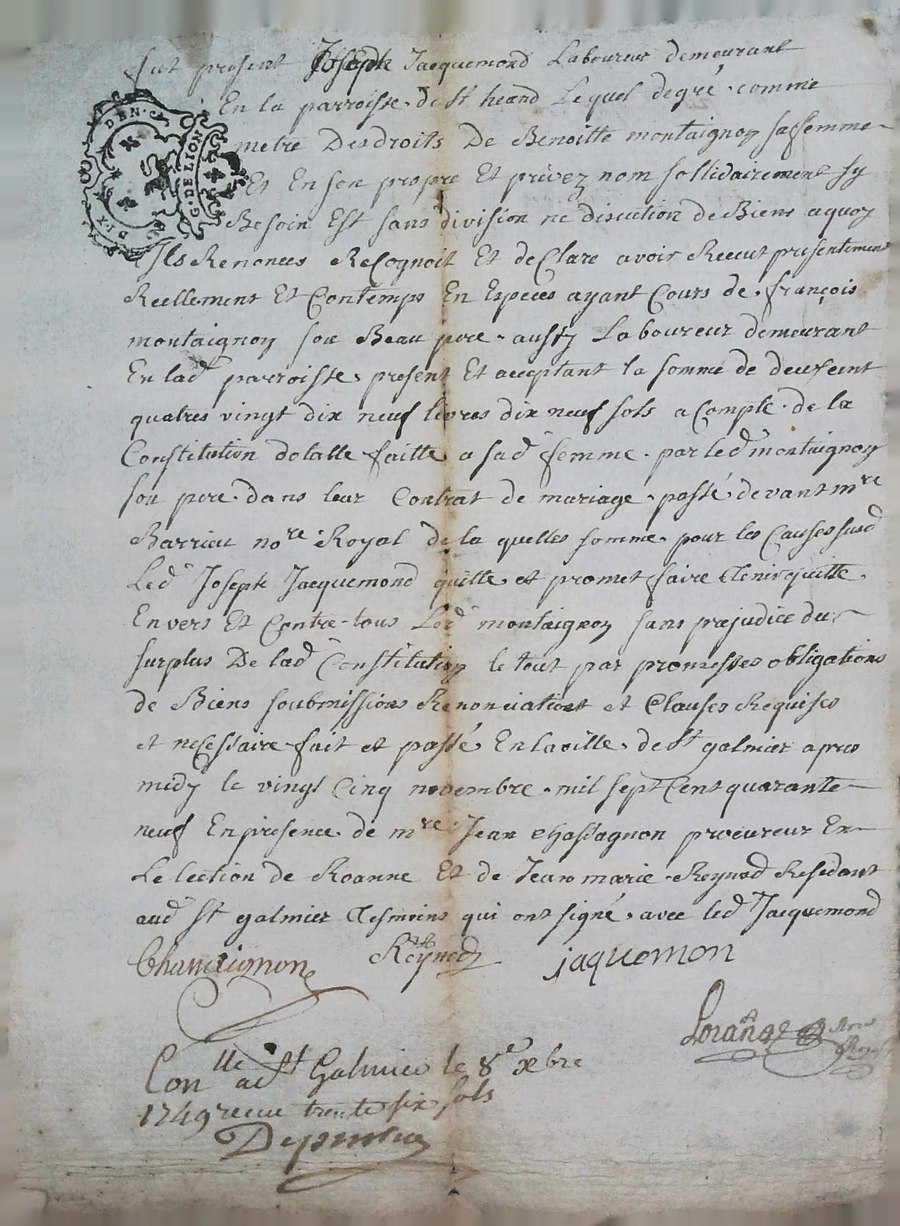 fut present Joseph Jacquemond Laboureur demeurant
En la parroisse de St heand Lequel degré comme
metre Desdroits De Benoitte montaignon sa femme
Et En son propre Et privez nom sollidairement sy
Besoin Est sans division ne discution de Biens aquoy
Ils Renonces Recognoit Et declare avoir Receut presentement
Reellement Et Contemps En Especes ayant Cours de françois
montaignon son Beau pere aussy Laboureur demeurant
En lad parroisse present Et aceptant la somme de deux cent
quatres vingt dix neuf livres dix neuf sols a Compte de la
Constitution dotalle faitte a sad femme par led montaignon
son pere dans leur Contrat de mariage passé devant mre
Barrieu nore Royal de la quelles somme pour les Causes susd
Led Joseph Jacquemond quitte et promet faire tenir quitte
Envers Et Contre tous Led montaignon sans prejudice du
surplus De lad Constitution le tout par promesses obligations
de Biens soubmissions Renonciations et Clauses Requises
et necessaire fait et passé En la ville de St galmier apres
midy le vingt Cinq novembre mil sept Cent quarante
neuf En presence de mre Jean chassagnon procureur En
Lelection de Roanne Et de Jean marie Reynod Residant
aud St galmier tesmoins qui ont signé avec led Jacquemond
Chassaignon Reynod jaquemon
Lorange
Con lle a St Galmier le 8e xbre
1749 receu trente six sols
G. DE LION